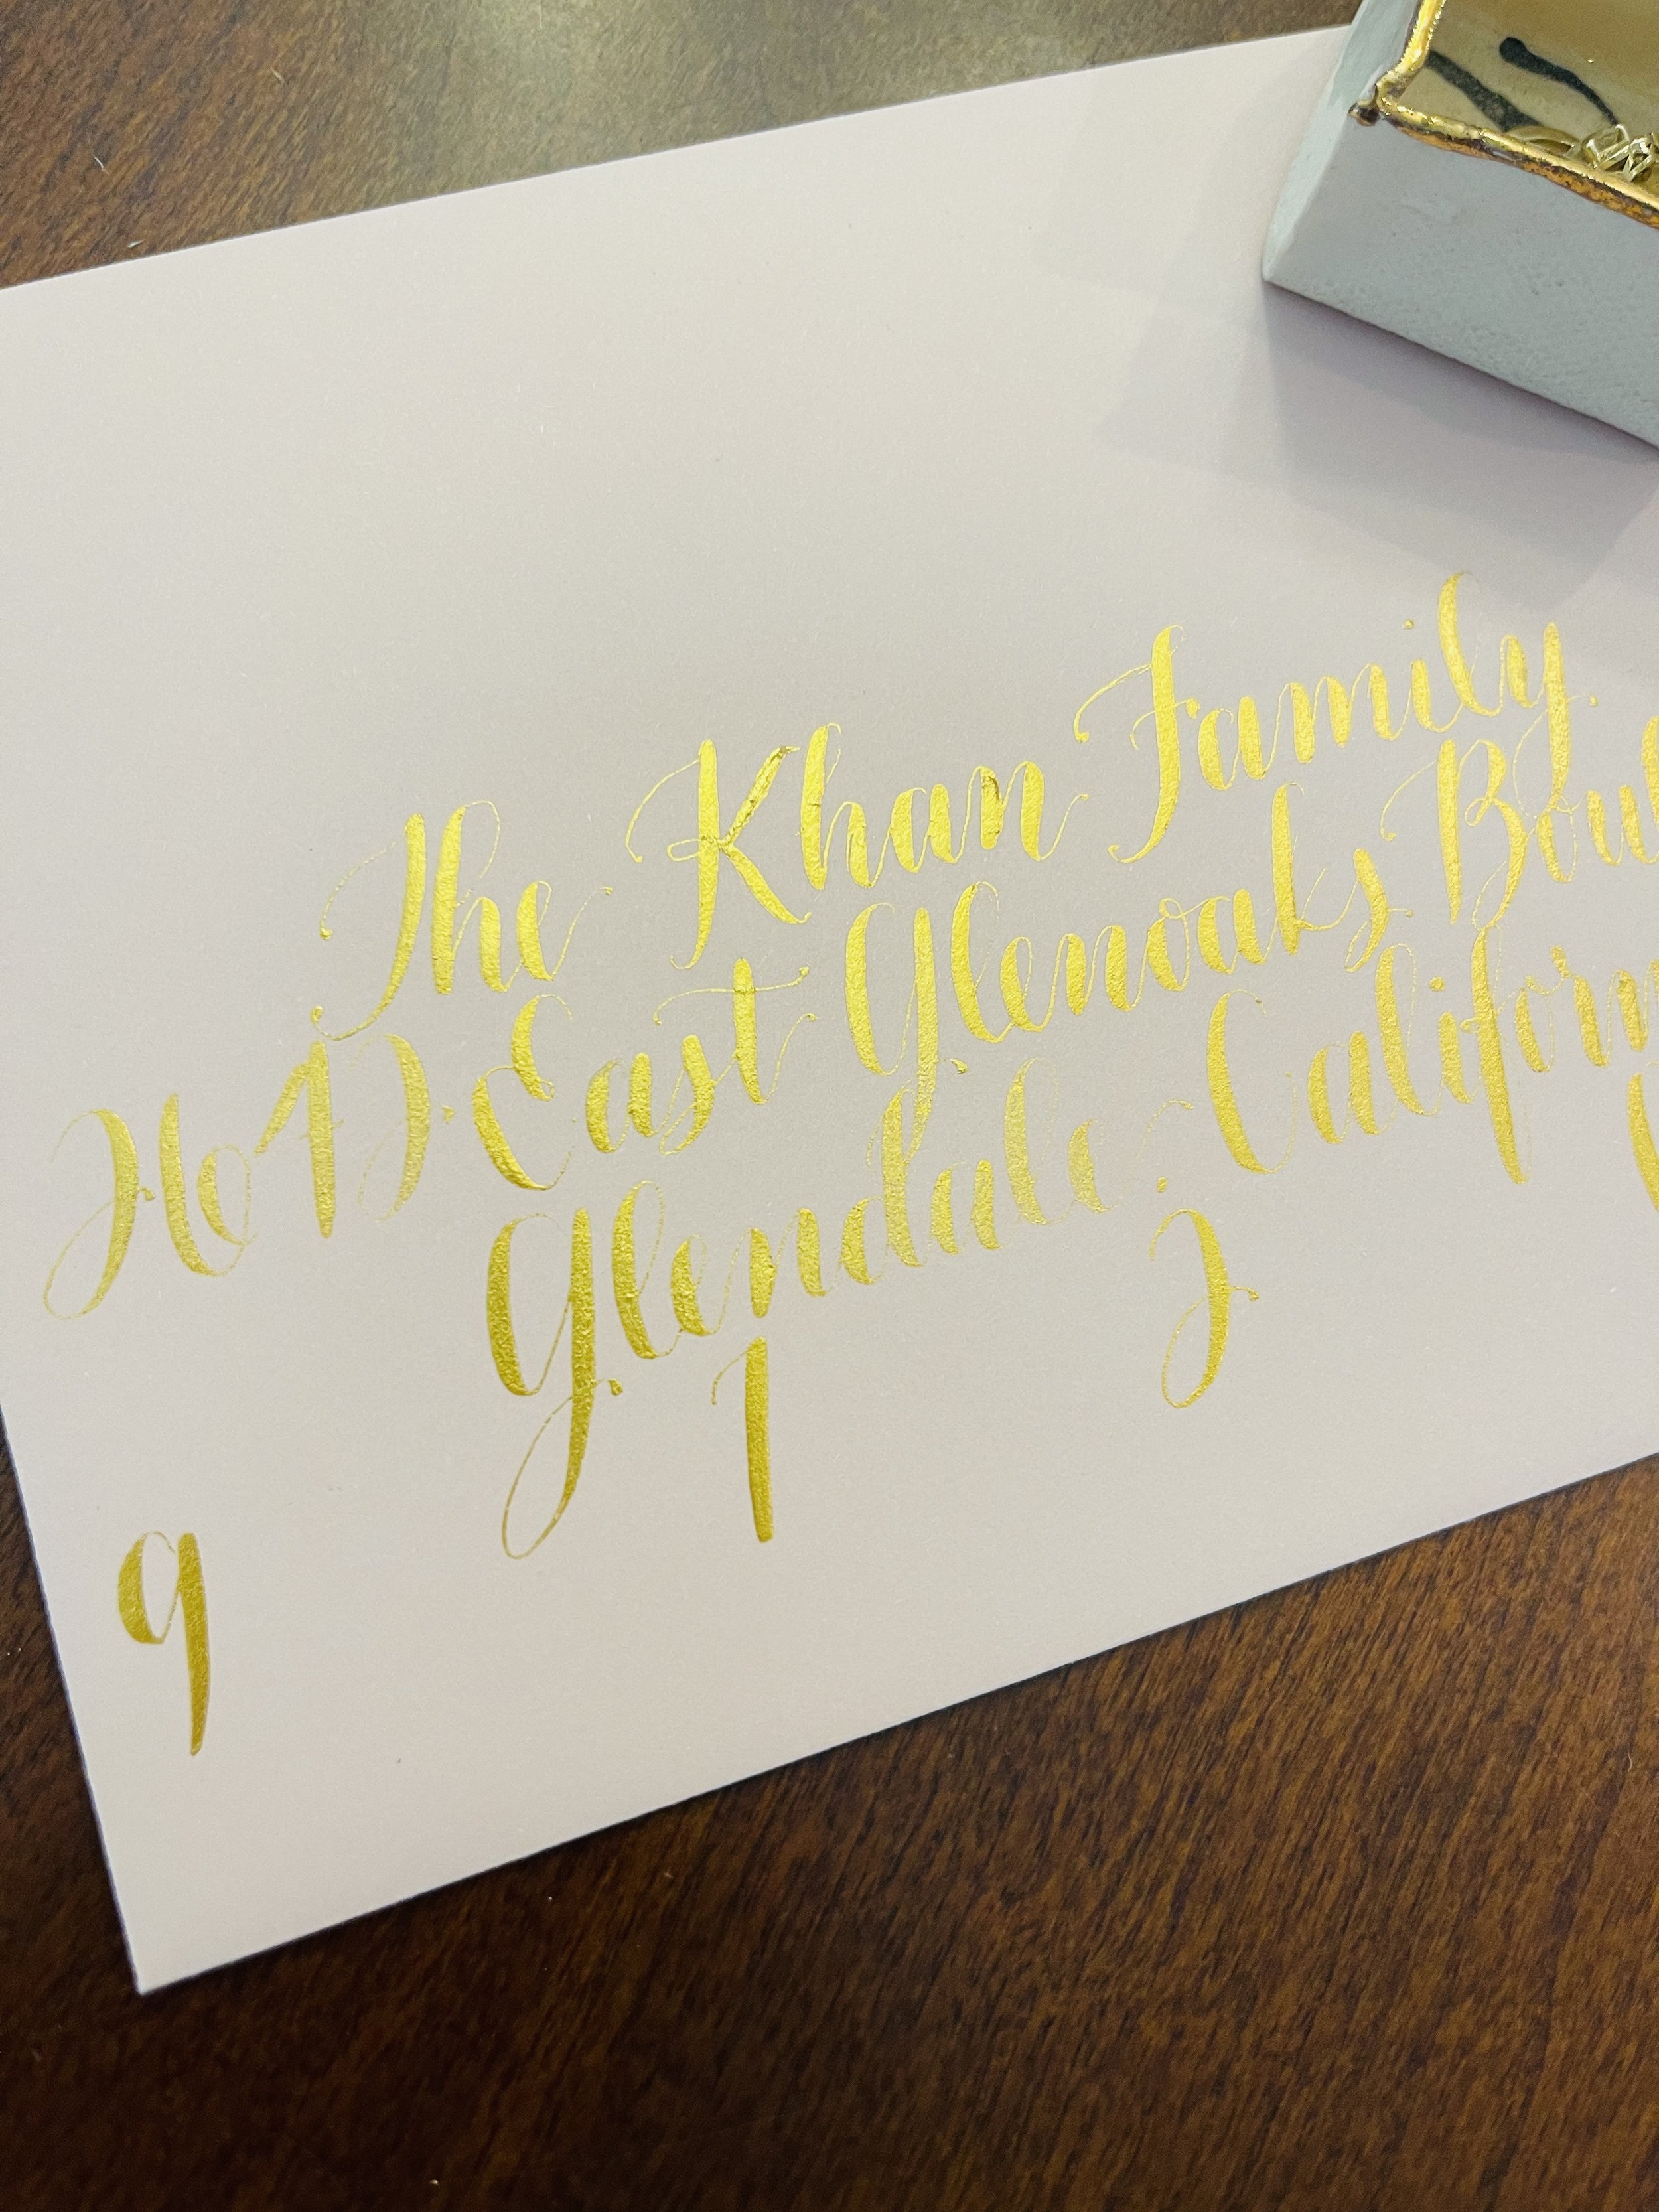 The Khan Family
East Glenoaks Boul
Glendale, Californ
9 1 2